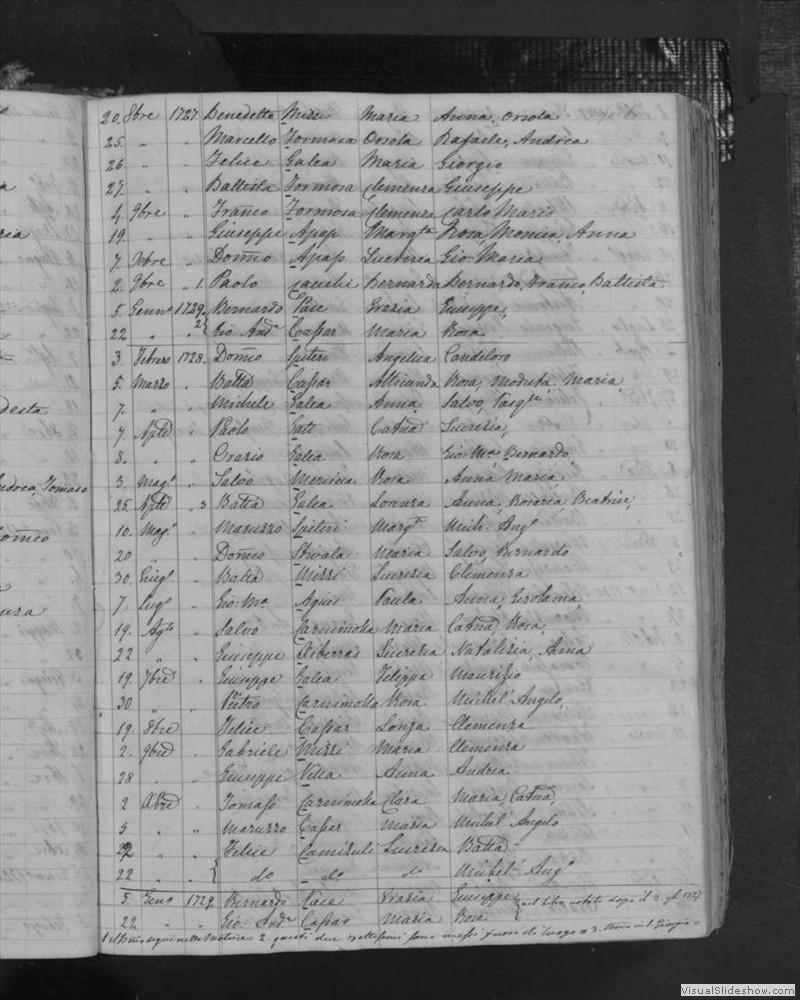 20. 8bre 1727. Benedetto Mizzi Maria Anna, Orsola
25. " " Marcello Formosa Orsola Rafaele, Andrea
26. " " Felice Galea Maria Giorgio
27. " " Battista Formosa Clemenza Giuseppe
4. 9bre " Franco Formosa Clemenza Carlo Mario
19. " " Giuseppe Apap Margta Rosa, Monica, Anna
7. Xbre " Domco Apap Lucrezia Gio Maria
2. 9bre " 1. Paolo Bernarda Bernardo, Franco, Battista
5. Genno 1729. Bernardo Pace Grazia Giuseppe,
22 " " 2 Gio Anda Cassar Maria Rosa
3. Febraro 1728. Domco Spiteri Angelica Candeloro
5. Marzo " Batta Cassar Rosa, Modesta, Maria,
7. " " Michele Galea Anna Salvo,
7 Aple " Paolo Gatt Catna Lucrezia,
8. " " Orazio Galea Rosa Gio: Ma Bernardo,
3. Magio " Salvo Rosa Anna Maria,
25. Aple " 3 Batta Galea Lorenza Anna, Rosaria, Beatrice,
10. Mago " Maruzzo Spiteri Margta Mich: Ango
20 " " Domco Maria Salvo, Bernardo
30. Giugo " Batta Mizzi Lucrezia Clemenza
7. Lugo " Gio: Ma Agius Paula Anna, Gerolama,
19. Agto " Salvo Caruimolla Maria Catna, Rosa,
22 " " Giuseppe Ziberras Lucrezia Natalizia, Anna
19. 7bre " Giuseppe Galea Filippa Maurizio
30 " " Pietro Caruimolla Rosa Michel' Angelo,
19. 8bre " Felice Cassar Lonza Clemenza
2. 9bre " Gabriele Mizzi Maria Clemenza
28 " " Giuseppe Villa Anna Andrea
2 Xbre " Tomaso Caruimolla Clara Maria, Catna,
5 " " Maruzzo Casser Maria Michel' Angelo
22 " " Felice Camizuli Lucrezia Batta
22 " " do do do Michel' Ango
5. Geno 1729. Bernardo Pace Grazia Giuseppe nel libro notato dopo il 2 9b 1727
22 " " Gio. Anda Cassar Maria Rosa
2. questi due battesimi sono messi fuori di luogo = 3.
desta
Andrea, Tomaso
VisualSlideshow.com